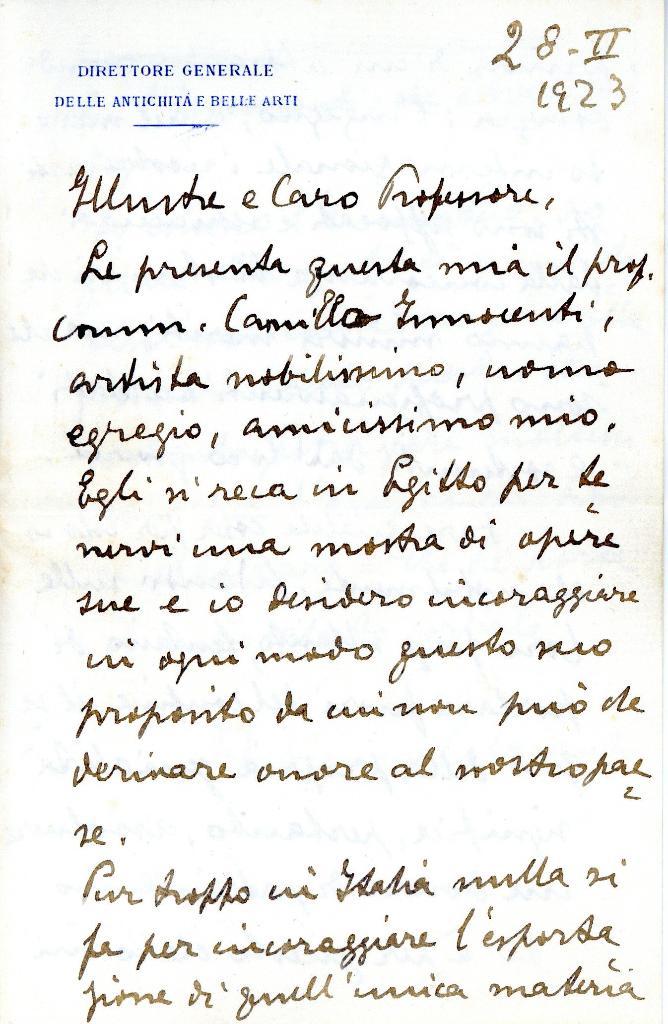 28-II
1923
DIRETTORE GENERALE
DELLE ANTICHITÁ E BELLE ARTI
Illustre e Caro Professore,
Le presenta questa mia il prof.
comm. Camillo Innocenti,
artista nobilissimo, uomo
egregio, amicissimo mio.
Egli si reca in Egitto per te
nervi una mostra di opere
sue e io desidero incoraggiare
in ogni modo questo suo
proposito da cui non può che
derivare onore al nostro pae=
se.
Pur troppo in Italia nulla si
fa per incoraggiare l'esporta
zione di quell'unica materia